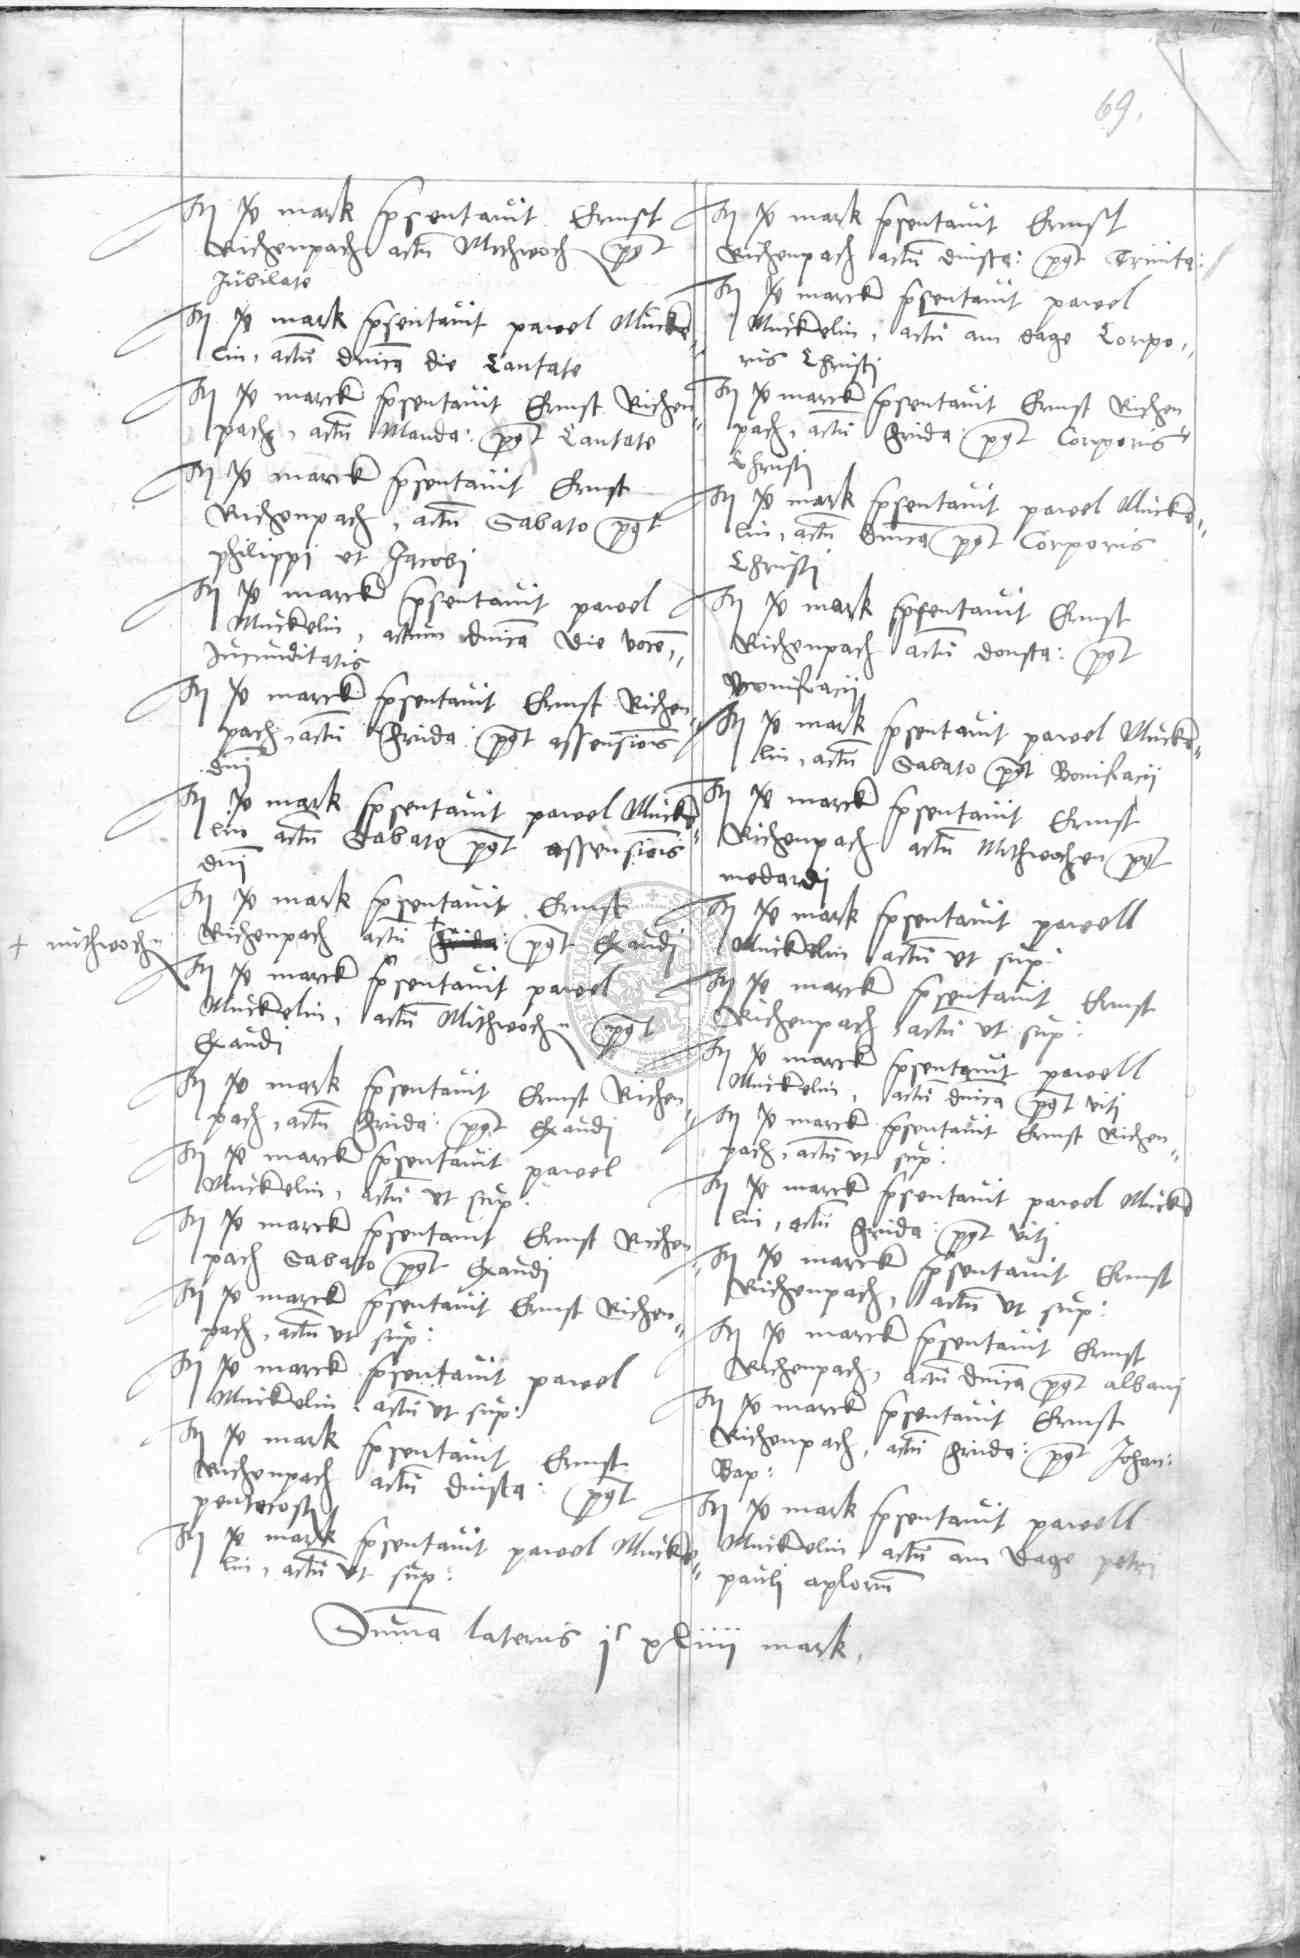 69.
Itm mark psentauit Ernst
Richenpach actu Mithwoch pt
Jubilate
Itm mark psentauit pawel Mucke
lin, actu dnica die Cantate
Itm marck psentauit Ernst Richen
pach, actu Manda: pt Cantate
Itm marck psentauit Ernst
Richenpach, actu Sabato pt
philippi et Jacobi
Itm marck psentauit pawel
Muckelin, actum dnica die voce
Jucunditatis
Itm marck psentauit Ernst Richen
pach, actu frida: pt assensiois
dni
Itm mark psentauit pawel Mucke
lin actu Sabato pt assensiois
dni
Itm mark psentauit Ernst
Richenpach actu + frida: pt Exaudi
+ mithwochn
Itm marck psentauit pawel
Muckelin, actu Mithwochn pt
Exaudi
Itm mark psentauit Ernst Richen
pach, actu frida: pt Exaudi
Itm marck psentauit pawel
Muckelin, actu ut sup:
Itm marck psentauit Ernst Richen
pach Sabato pt Exaudi
Itm marck psentauit Ernst Richen
pach, actu ut sup:
Itm marck psentauit pawel
Muckelin, actu ut sup:
Itm mark psentauit Ernst
Richenpach actu dinsta: pt
pentecosti
Itm mark psentauit pawel Mucke
lin, actu ut sup:
Itm mark psentauit Ernst
Richenpach actu dinsta: pt Trinita:
Itm marck psentauit pawel
Muckelin, actu am dage Corpo
ris Christi
Itm marck psentauit Ernst Richen
pach, actu frida: pt Corporis
Christi
Itm mark psentauit pawel Mucke
lin, actu dnica pt Corporis
Christi
Itm mark psentauit Ernst
Richenpach actu donsta: pt
Bonifacii
Itm mark psentauit pawel Mucke
lin, actu Sabato pt Bonifacii
Itm marck psentauit Ernst
Richenpach actu Mithwochen pt
medardi
Itm mark psentauit pawell
Muckelin actu ut sup:
Itm marck psentauit Ernst
Richenpach actu ut sup:
Itm marck psentauit pawell
Muckelin, actu dnica pt viti
Itm marck psentauit Ernst Richen
pach, actu ut sup:
Itm marck psentauit pawel Mucke
lin, actu frida: pt viti
Itm marck psentauit Ernst
Richenpach, actu ut sup:
Itm marck psentauit Ernst
Richenpach, actu dnica pt albani
Itm marck psentauit Ernst
Richenpach, actu frida: pt Johan:
Bap:
Itm mark psentauit pawell
Muckelin, actu am dage petri
pauli aplorum
Suma lateris jc xliiii mark,